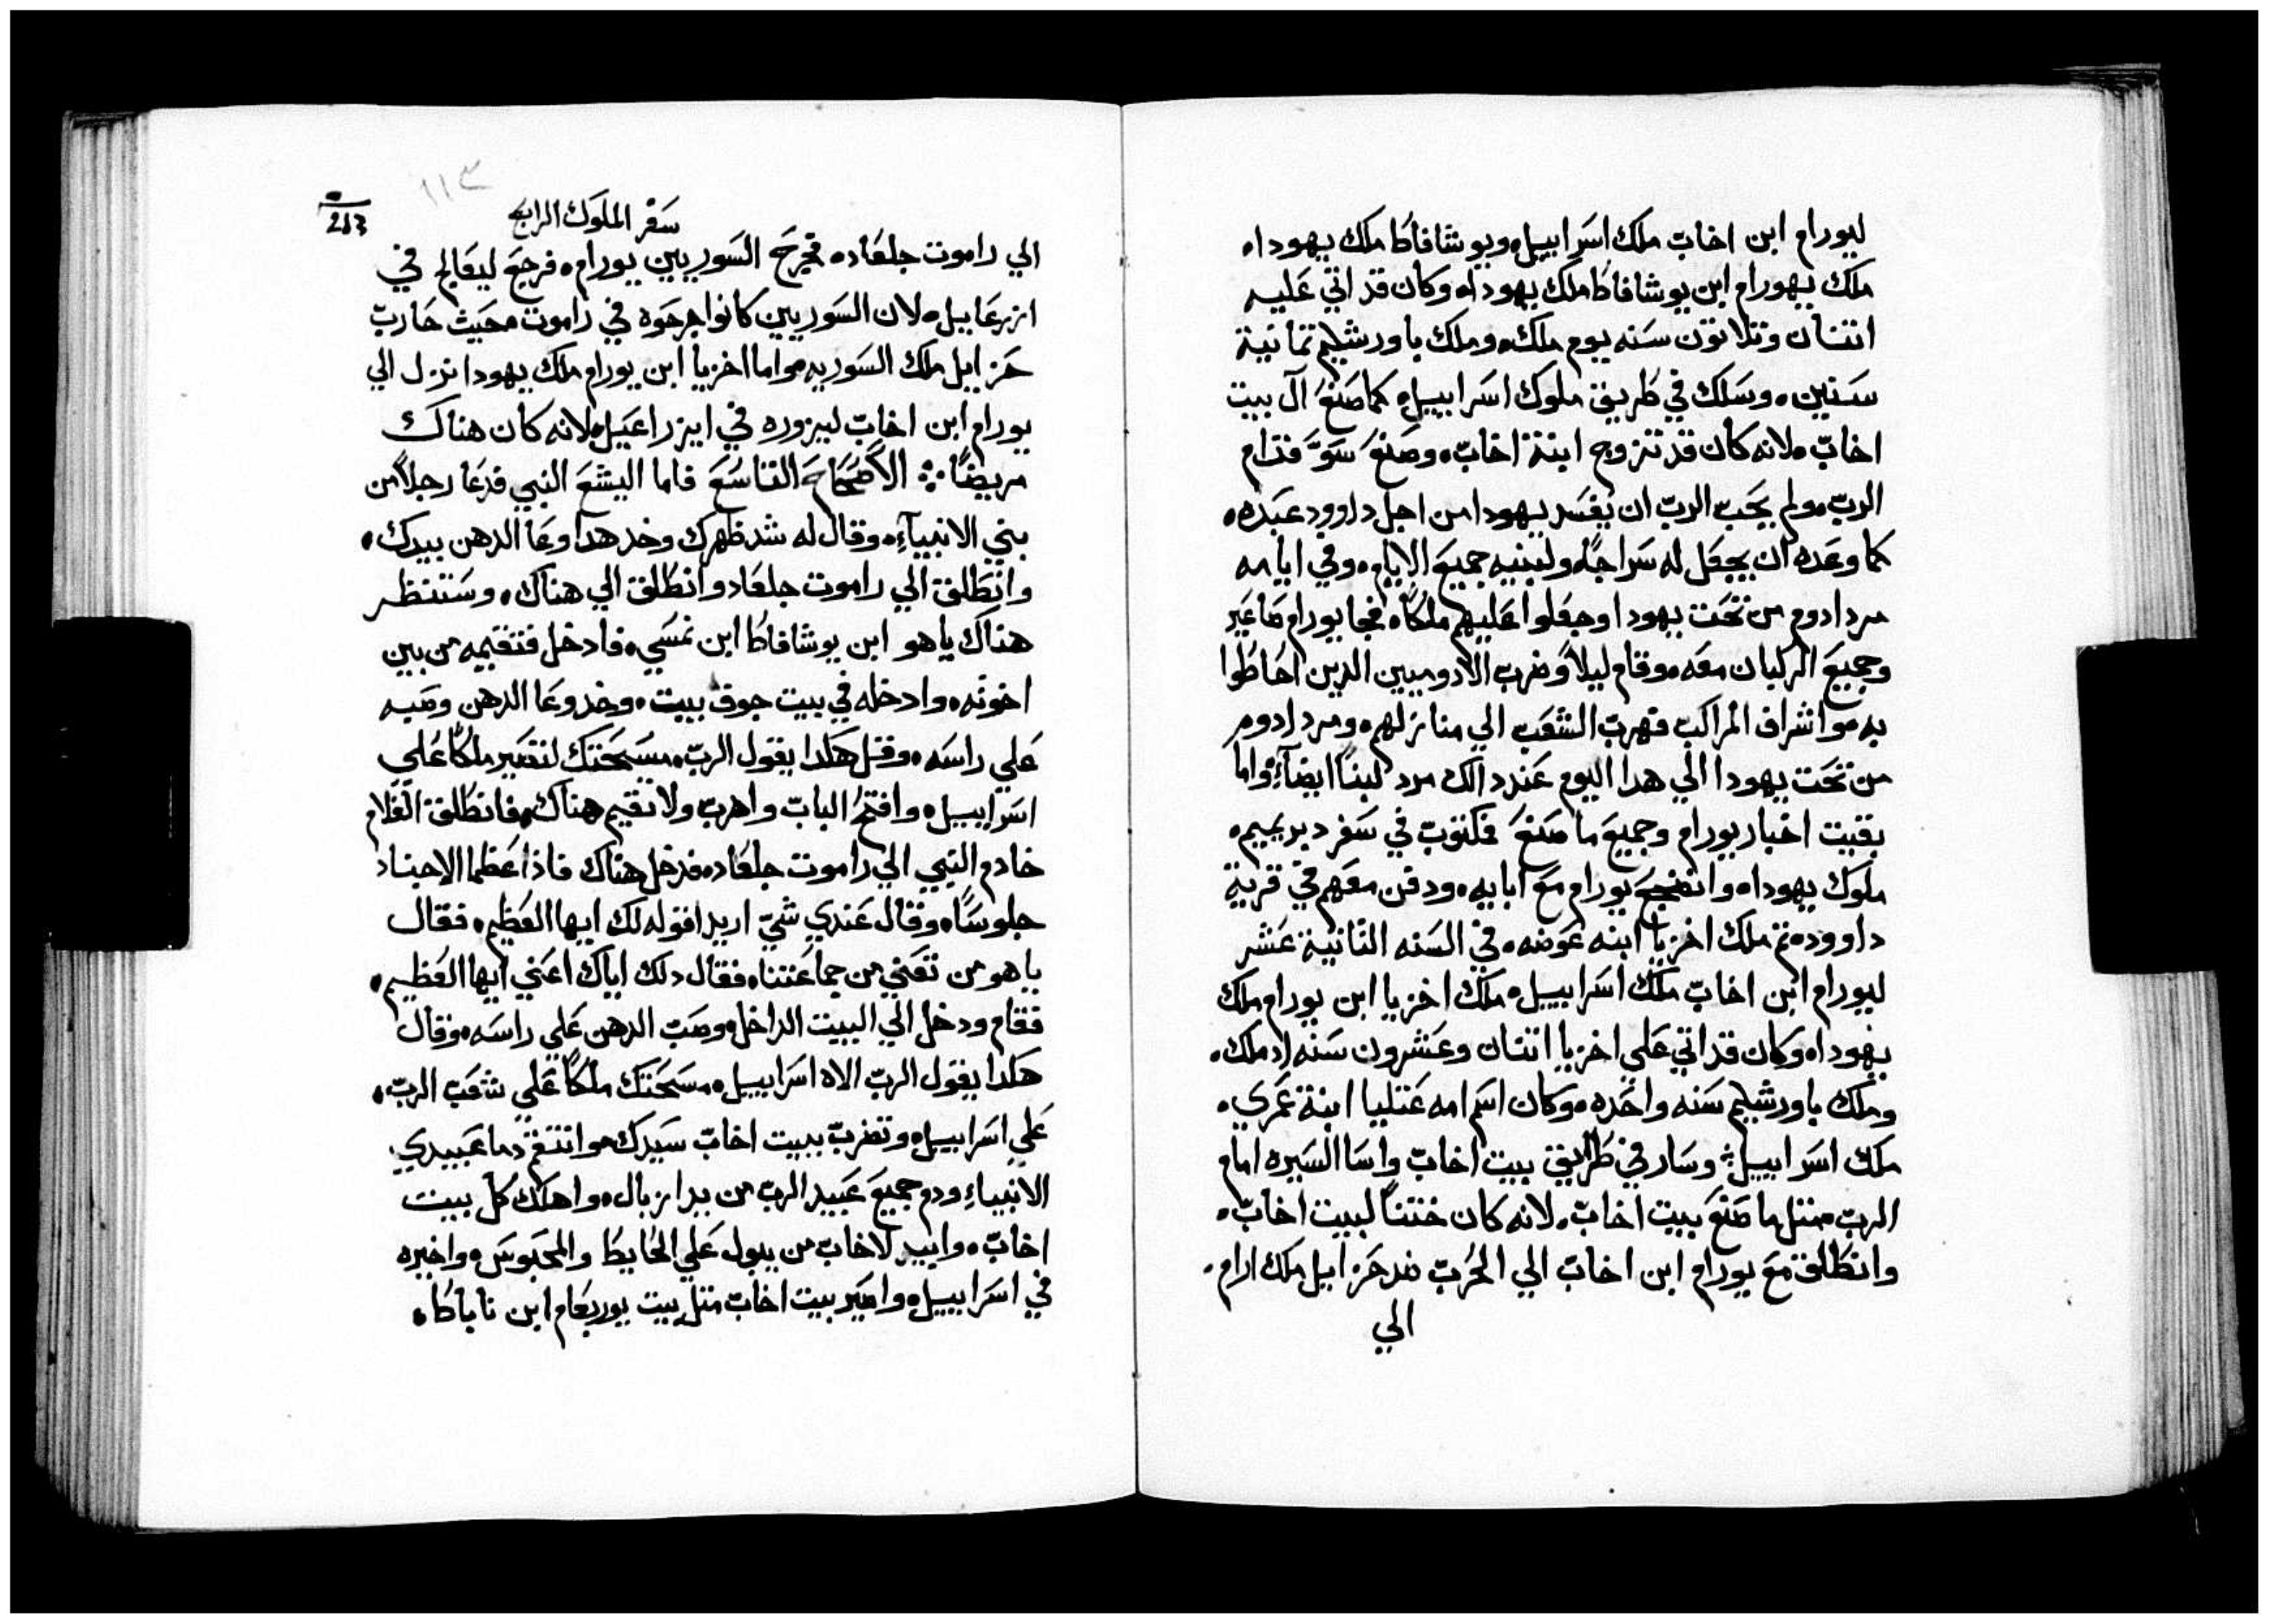 ليورام ابن اخاب ملك اسراييل ويوشافاط ملك يهودا
ملك يهورام ابن يوشافاط ملك يهودا وكان قد اتي عليه
اتنتان وتلاتون سنه يوم ملك وملك باورشليم تمانية
سنين وسلك في طريق ملوك اسراييل كما صنع ال بيت
اخاب لانه كان قد تزوج ابنة اخاب وصنع سو قدام
الرب ولم يحب الرب ان يفسد يهودا من اجل داوود عبده
كما وعده ان يجعل له سراجا ولبنيه جميع الايام وفي ايامه
مرد ادوم من تحت يهودا وجعلوا عليهم ملكا فجا يورام صاعير
وجميع الركبان معه وقام ليلا وضرب الادوميين الدين احاطوا
به واشراف المراكب فهرب الشعب الي منازلهم ومرد ادوم
من تحت يهودا الي هدا اليوم عند دالك مرد لبنا ايضا واما
بقيت اخبار يورام وجميع ما صنع فمكتوب في سفر دبريميم
ملوك يهودا وانضجع يورام مع ابايه ودفن معهم في قرية
داوود تم ملك اخزيا ابنه عوضه في السنه التانية عشر
ليورام ابن اخاب ملك اسراييل ملك اخزيا ابن يورام ملك
يهودا وكان قد اتي علي اخزيا اتنتان وعشرون سنه اد ملك
وملك باورشليم سنه واحده وكان اسم امه عتليا ابنة عمري
ملك اسراييل وسار في طرايق بيت اخاب واسا السيره امام
الرب متل ما صنع بيت اخاب لانه كان ختنا لبيت اخاب
وانطلق مع يورام ابن اخاب الي الحرب ضد حزاييل ملك ارام
الي
١١٣
263
سفر الملوك الرابع
الي راموت جلعاد فجرح السوريين يورام فرجع ليعالج في
ازرعاييل لان السوريين كانوا جرحوه في راموت محيث حارب
حزاييل ملك السوريه واما اخزيا ابن يورام ملك يهودا نزل الي
يورام ابن اخاب ليزوره في ايزراعيل لانه كان هناك
مريضا الاصحاح التاسع فاما اليشع النبي فدعا رجلا من
بني الانبياء وقال له شد ظهرك وخد هدا وعا الدهن بيدك
وانطلق الي راموت جلعاد وانطلق الي هناك وستنظر
هناك ياهو ابن يوشافاط ابن نمسي فادخل فتقيمه من بين
اخوته وادخله في بيت جوف بيت وخد وعا الدهن وصبه
علي راسه وقل هكدا يقول الرب مسحتك لتصير ملكا علي
اسراييل وافتح الباب واهرب ولا تقيم هناك فانطلق الغلام
خادم النبي الي راموت جلعاد فدخل هناك فاذا عظما الاجناد
جلوسا وقال عندي شي اريد اقوله لك ايها العظيم فقال
ياهو من تعني من جماعتنا فقال دلك اياك اعني ايها العظيم
فقام ودخل الي البيت الداخل وصب الدهن علي راسه وقال
هكدا يقول الرب الاه اسراييل مسحتك ملكا علي شعب الرب
علي اسراييل وتضرب بيت اخاب سيدك وانتقم دما عبيدي
الانبياء ودم جميع عبيد الرب من يد ايزبال واهلك كل بيت
اخاب وابيد لاخاب من يبول علي الحايط والمحبوس واخيره
في اسراييل واصير بيت اخاب متل بيت يوربعام ابن ناباط